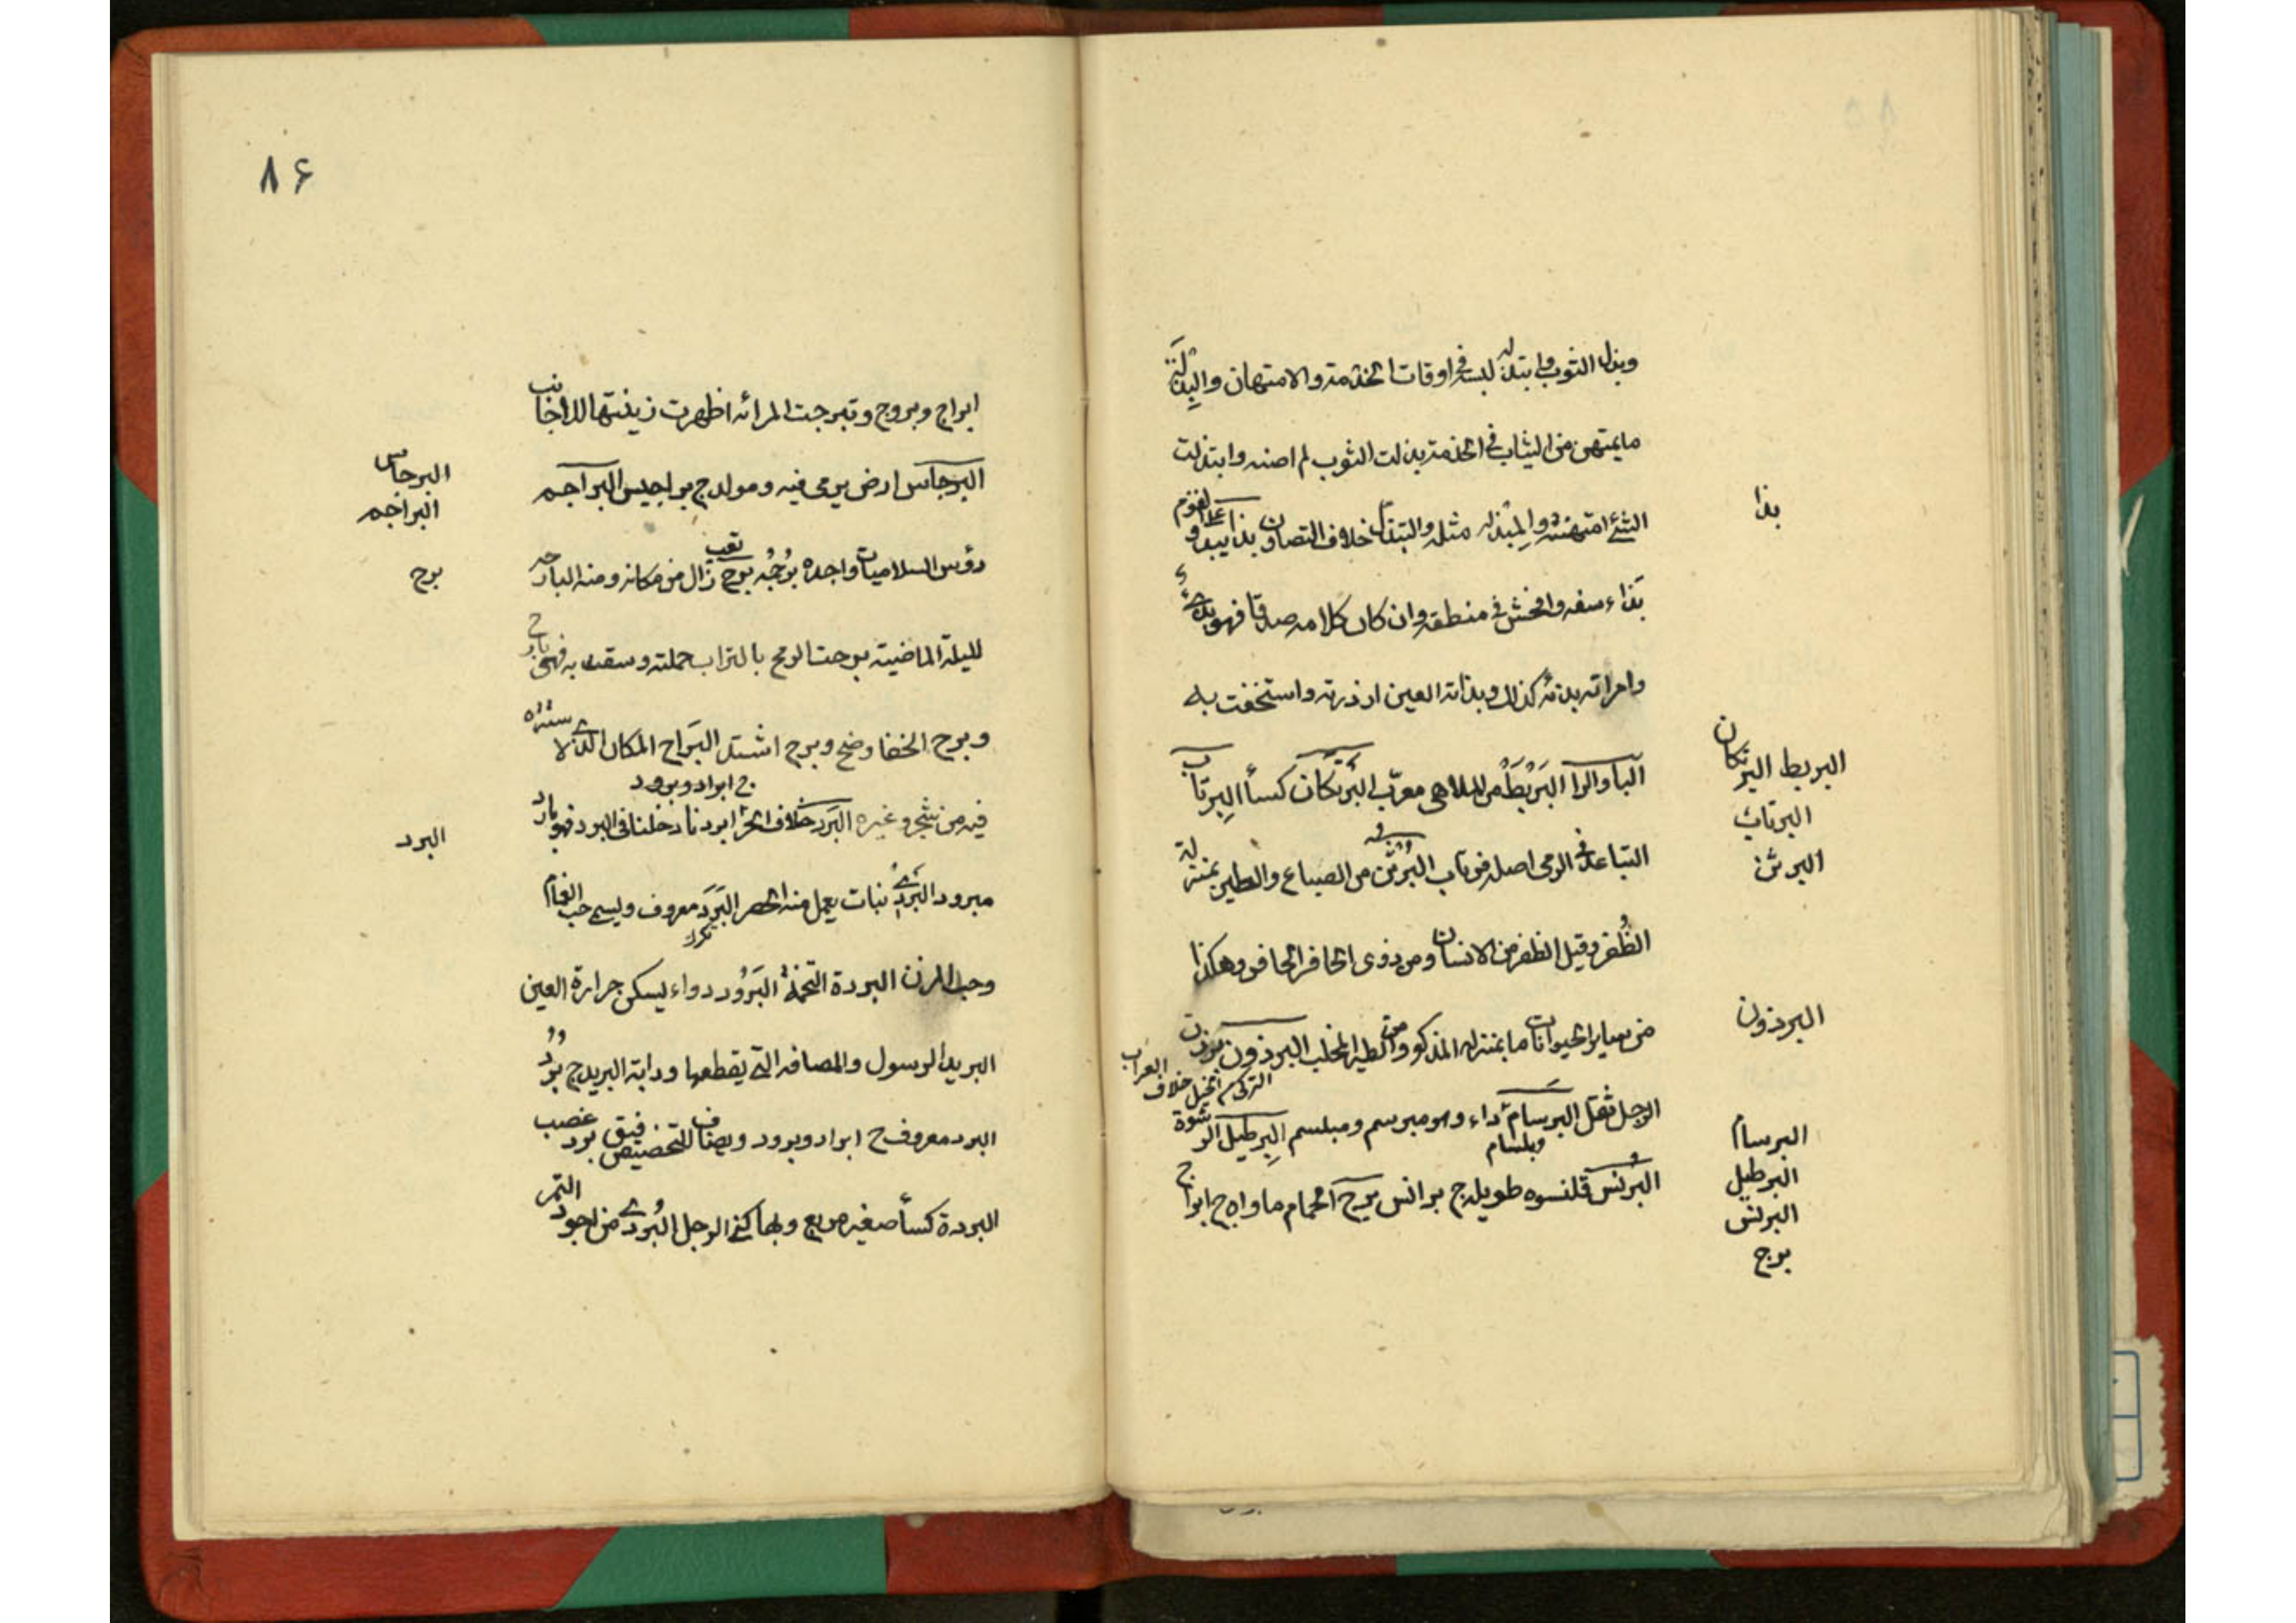 وبذل الثوب وابتذله لبسه فى اوقات الخدمة والامتهان والبِذلَة
ما يمتهن من الثياب فى الخدمة بذلت الثوب لم اصنه وابتذلت
الشئ امتهنته والمِبذله مثله والتبذل خلاف التصاون بذا يبذو على القوم
بذا
بَذاء سفه وافحش فى منطقه وان كان كلامه صدقا فهو بذىّ
وامراته بذئه كذلك وبذاته العين ازدرته واستخفت به
الباوالرا البَرْبَطُ من الملاهى معرّب البَرّتكان كسأ البِرتاب
البربط البرتكان
البرتاب
التباعد فى الرمى اصله فرتاب البُرْثن من السباع والطير بمنزلة
البرثن
الظُفر وقيل الظفر من الانسان ومن ذوى الحافر الحافر وهكذا
من ساير الحيوانات ما بمنزله المذكور ومن الطير المخلب البرذون برذن
البرذون
التركى من الخيل خلاف العراب
الرجل ثقل البرسام داء وهو مبرسم ومبلسم البِرطيل الرشوة
وبلسام
البرسام
البرطيل
البُرنس قلنسوه طويله ج برانس برج الحمام ماواه ج ابراج
البرنس
برج
٨۶
ابراج وبروج وتبرجت المرائه اظهرت زينتها للاجانب
البرجاس ارض يرمى فيه ومولد ج براجيس البراجم
البرجاس
البراجم
رؤس السلاميات واحده بُرجُمه برح تعب زال من مكانه ومنه البارحه
برح
لليلة الماضية برحت الريح بالتراب حملته وسفت به فهى بارح
وبرح الخفا وضح وبرح اشتد البَراح المكان الذى لا ستره
فيه من شجر وغيره البَرد خلاف الحر ابردنا دخلنا فى البرد فهو بارد
ج ابراد وبرود
البرد
مبرود البَردىّ نبات يعمل منه الحصر البَرَد معروف ويسمى حب الغمام
تكرك
وحب المزن البردة التخمة البَرُود دواء يسكن حرارة العين
البريد الرسول والمسافه التى يقطعها ودابة البريد ج بُرُد
البرد معروف ج ابراد وبرود ويضاف للتخصيص فيق برد عصب
البردة كسأ صغير مربع وبها كنى الرجل البُردى من اجود التمر